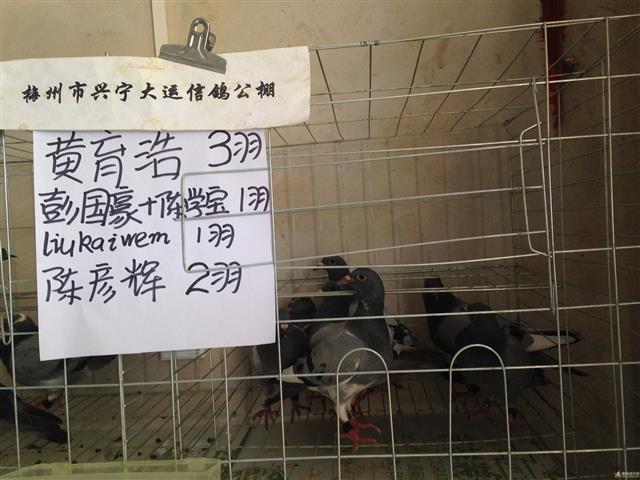 梅州市兴宁大运信鸽公棚
黄育浩 3羽
彭国豪+陈学宝 1羽
liukaiwem 1羽
陈彦辉 2羽